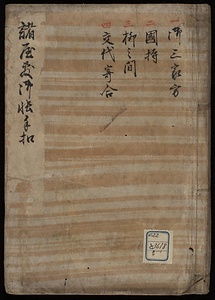 一 御三家方
二 國持
三 柳之間
四 交代寄合
諸屋敷御帳手扣